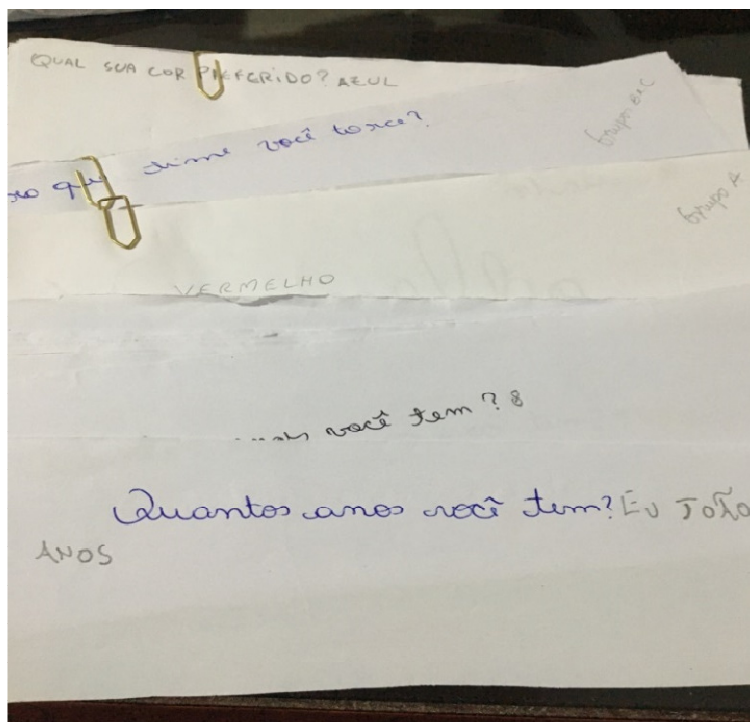 QUAL SUA COR PREFERIDO? AZUL
que time você torce?
Grupo B e C
Grupo A
VERMELHO
você tem? 8
Quantos anos você tem? EU JOÃO
ANOS